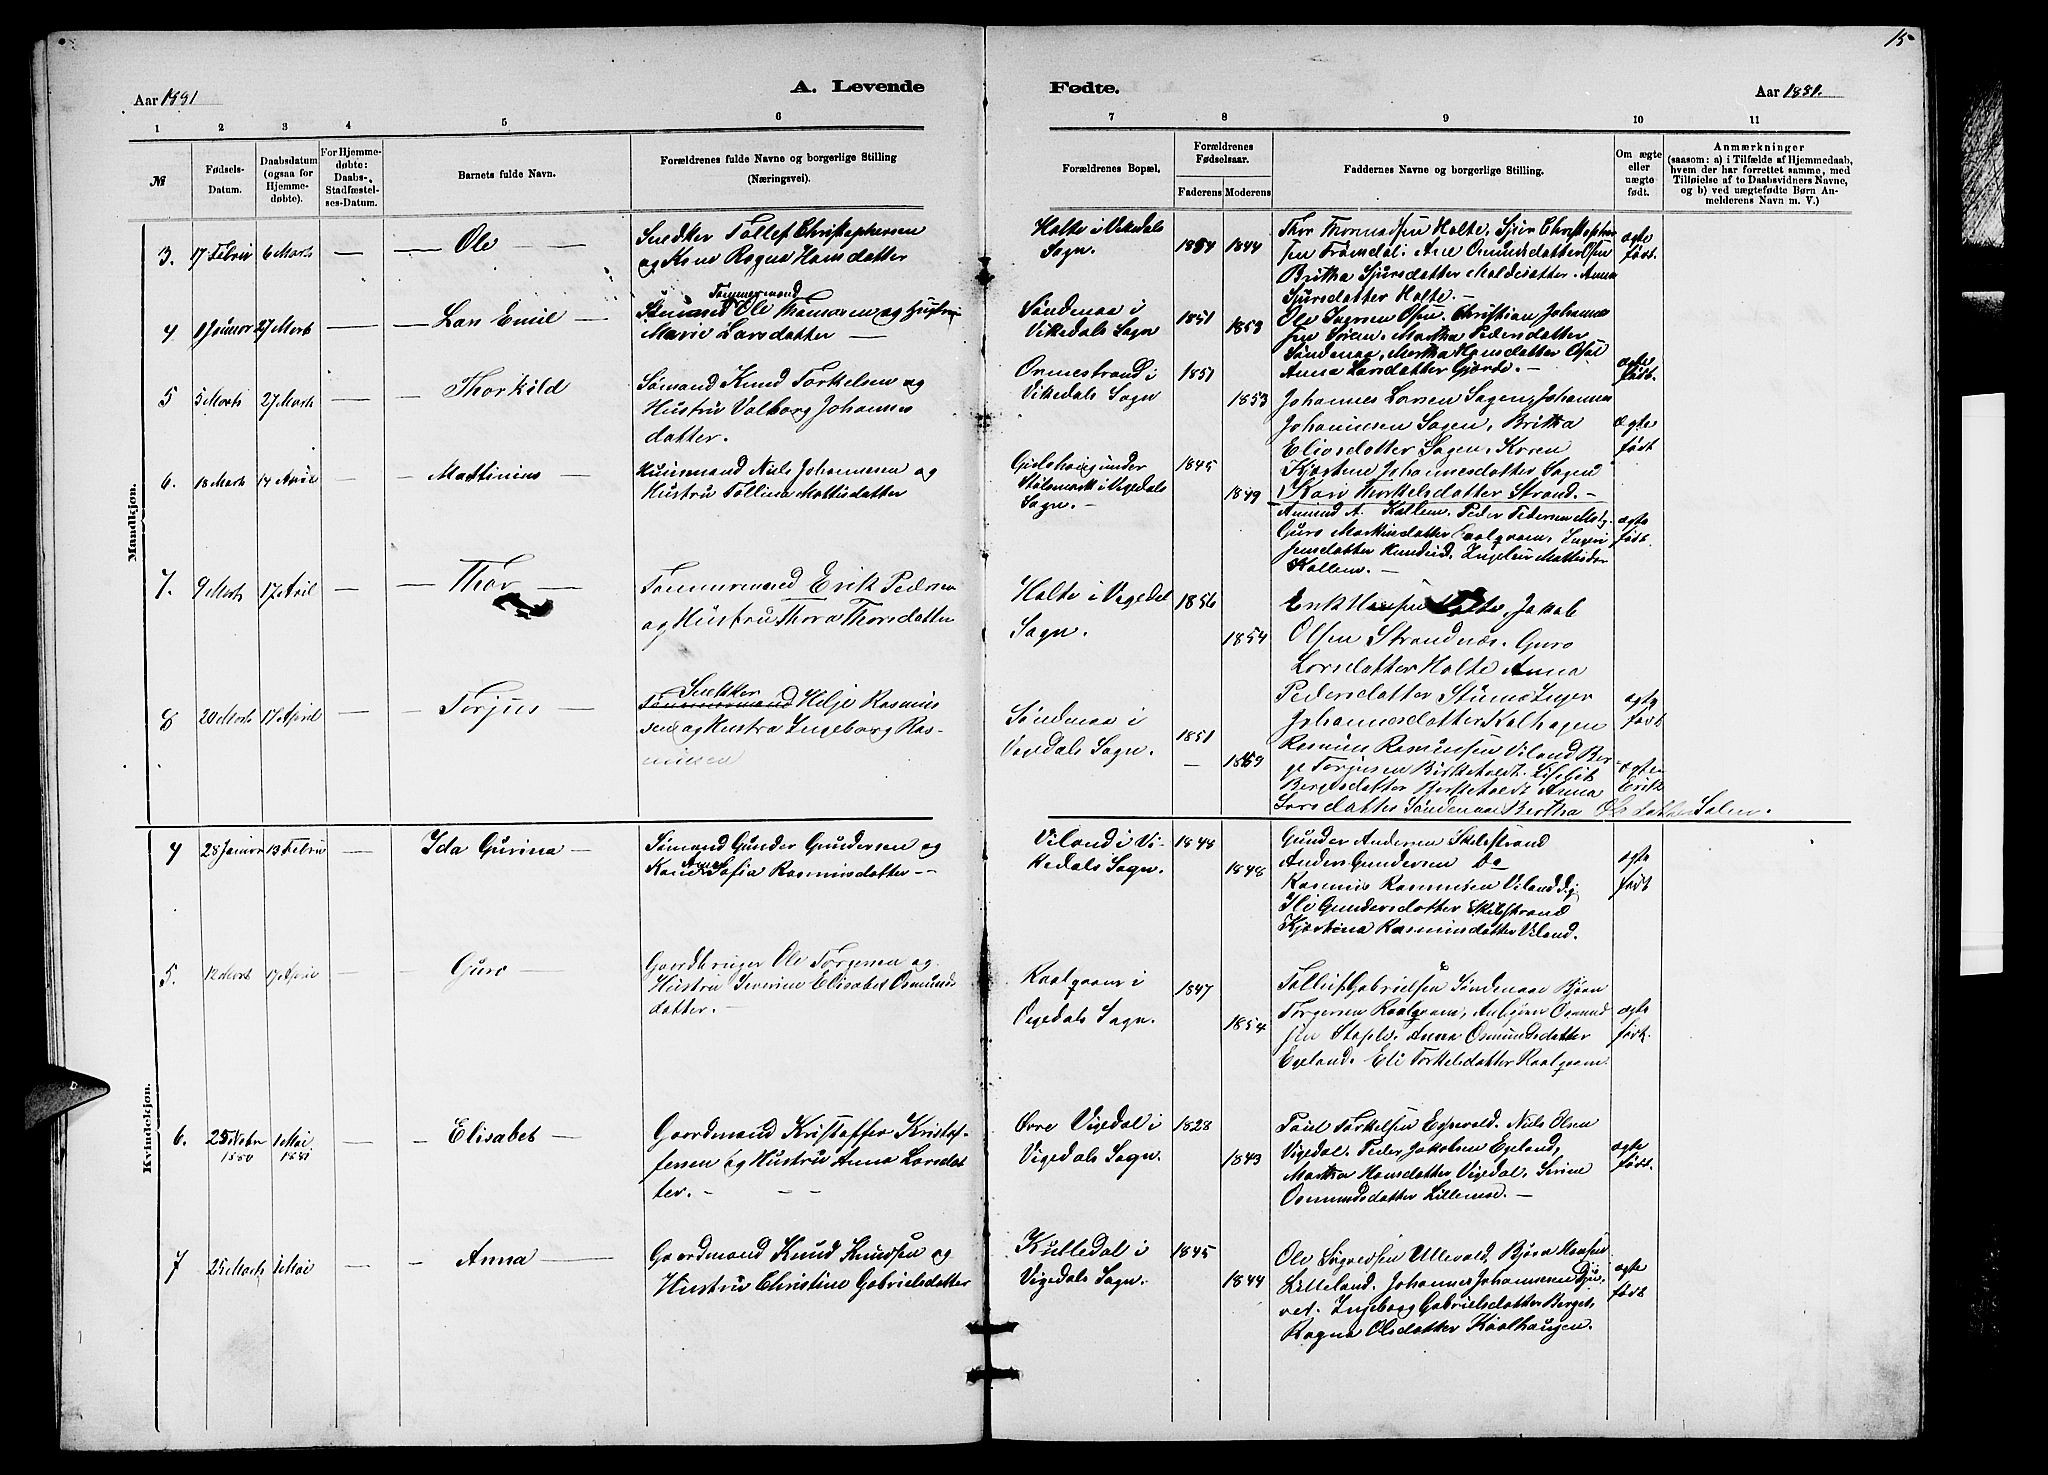 15
Aar 1881
A. Levende
Fødte.
Aar 1881.
1 2 3 4 5 6 7 8 9 10 11
№
Fødsels-
Datum.
Daabsdatum
(ogsaa for
Hjemme-
døbte).
For Hjemme-
døbte:
Daabs-
Stadfæstel-
ses-Datum.
Barnets fulde Navn.
Forældrenes fulde Navne og borgerlige Stilling
(Næringsvei).
Forældrenes Bopæl.
Forældrenes
Fødselsaar.
Faderens
Moderens
Faddernes Navne og borgerlige Stilling.
Om ægte
eller
uægte
født.
Anmærkninger
(saasom: a) i Tilfælde af Hjemmedaab,
hvem der har forrettet samme, med
Tilføielse af to Daabsvidners Navne,
og b) ved uægtefødte Børn An-
melderens Navn m. V.)
Mandkjøn.
3. 17 Febru 6 Marts — — Ole —
Snedker Tollef Christophersen
og Kone Ragna Hansdatter
Holte i Vikedals
Sogn.
1854 1844
Thor Thormodsen Holte, Sjur Christopher
sen Tromsdal. Ane Osmundsdatter Olsen
Britha Sjursdatter Anna
Sjursdatter Holte. —
ægte
født.
4 1 Januar 27 Marts — — Lars Emil —
Tømmermand
Ole Thomasen og Hustru
Marie Larsdatter —
Søndenaa i
Vikedals Sogn
1851 1853
Christian Johannes
sen Martha Pedersdatter
Søndenaa, Martha Hansdatter
Anna Larsdatter Gjerde. —
ægte
født.
5 5 Marts 27 Marts — — Thorkild
Sømand Knud Torkelsen og
Hustru Valborg Johannes
datter.
Ormestrand i
Vikedals Sogn
1851 1853
Johannes Larsen Sagen, Johannes
Johannesen Sagen, Britha
Eliasdatter Sagen, Karen
Kjestene Johannesdatter Sagen
Kari Thorkelsdatter Strand. —
Ægte
født
6. 18 Marts 14 April — — Martinius —
Huusmand Niels Johannesen og
Hustru Tollina Mattisdatter
under
i Vigedals
Sogn. —
1845 1849
Amund A. Kallem. Peder Pedersen
Guro Martinsdatter Raalqvam,
Mattisdr
Kallem. —
ægte
født.
7. 9 Marts 17 April — — Thor —
Tømmermand Erik Pedersen
og Hustru Thora Thorsdatter
Holte i Vigedal
Sogn.
1856 1854
Erik Hansen Holte, Jakob
Olsen Strandnæs. Guro
Larsdatter Holte Anna
Pedersdatter
Johannesdatter
ægte
født
8 20 Marts 17 April — — Torjus —
Snekker
Tømmermand Helje Rasmus
sen og Hustru Ingeborg Ras-
Søndenaa i
Vigedals Sogn.
1851 — 1859
Rasmus Rasmussen Viland Ber-
ge Torjusen Birkeholdt. Lisebet
Bergesdatter Berkeholdt Anna
Larsdatter Søndenaa Bertha
ægte
Erik
Kvindekjøn.
4 28 Januar 13 Febru — Ida Gurina —
Sømand Gunder Gundersen og
Kone Anna Sofia Rasmusdatter --
Viland i Vi-
kedals Sogn.
1848 1848
Gunder Andersen Skelstrand
Anders Gundersen Do
Rasmus Rasmussen Viland
Ili Gundersdatter Skelstrand
Kjestina Rasmusdatter Viland.
ægte
født
5. 12 Marts 17 April — — Guro —
Gaardbruger Ole Torgersen og
Hustru Severine Elisabet Osmunds
datter. —
Raalqvam i
Vigedals Sogn.
1847 1854
Tollef Gabrielsen Søndenaa Bjørn
Torgersen Raalqvam, Anbjørn Osmund
sen Stople. Anna Osmundsdatter
Egeland. Eli Torkelsdatter Raalqvam.
ægte
født.
6. 25 Nobr
1880
1 Mai
1881
— - Elisabet —
Gaardmand Kristoffer Kristof-
fersen og Hustru Anna Larsdat
ter. — — —
Øvre Vigedal i
Vigedals Sogn.
1828 1843
Paul Torkelsen Niels Olsen
Vigedal. Peder Jakobsen Egeland,
Martha Hansdatter Vigedal, Serine
Osmundsdatter Lillemoe. —
ægte
født.
7 25 Marts 1 Mai — - Anna —
Gaardmand Knud Knudsen og
Hustru Christine Gabrielsdatter
Kulledal i
Vigedals Sogn.
1845 1844
Ole Ullevold, Bjørn Hansen
Lilleland. Johannes Johannesen
Ingeborg Gabrielsdatter Berget,
Ragna Olsdatter Kaalhaugen.
ægte
født